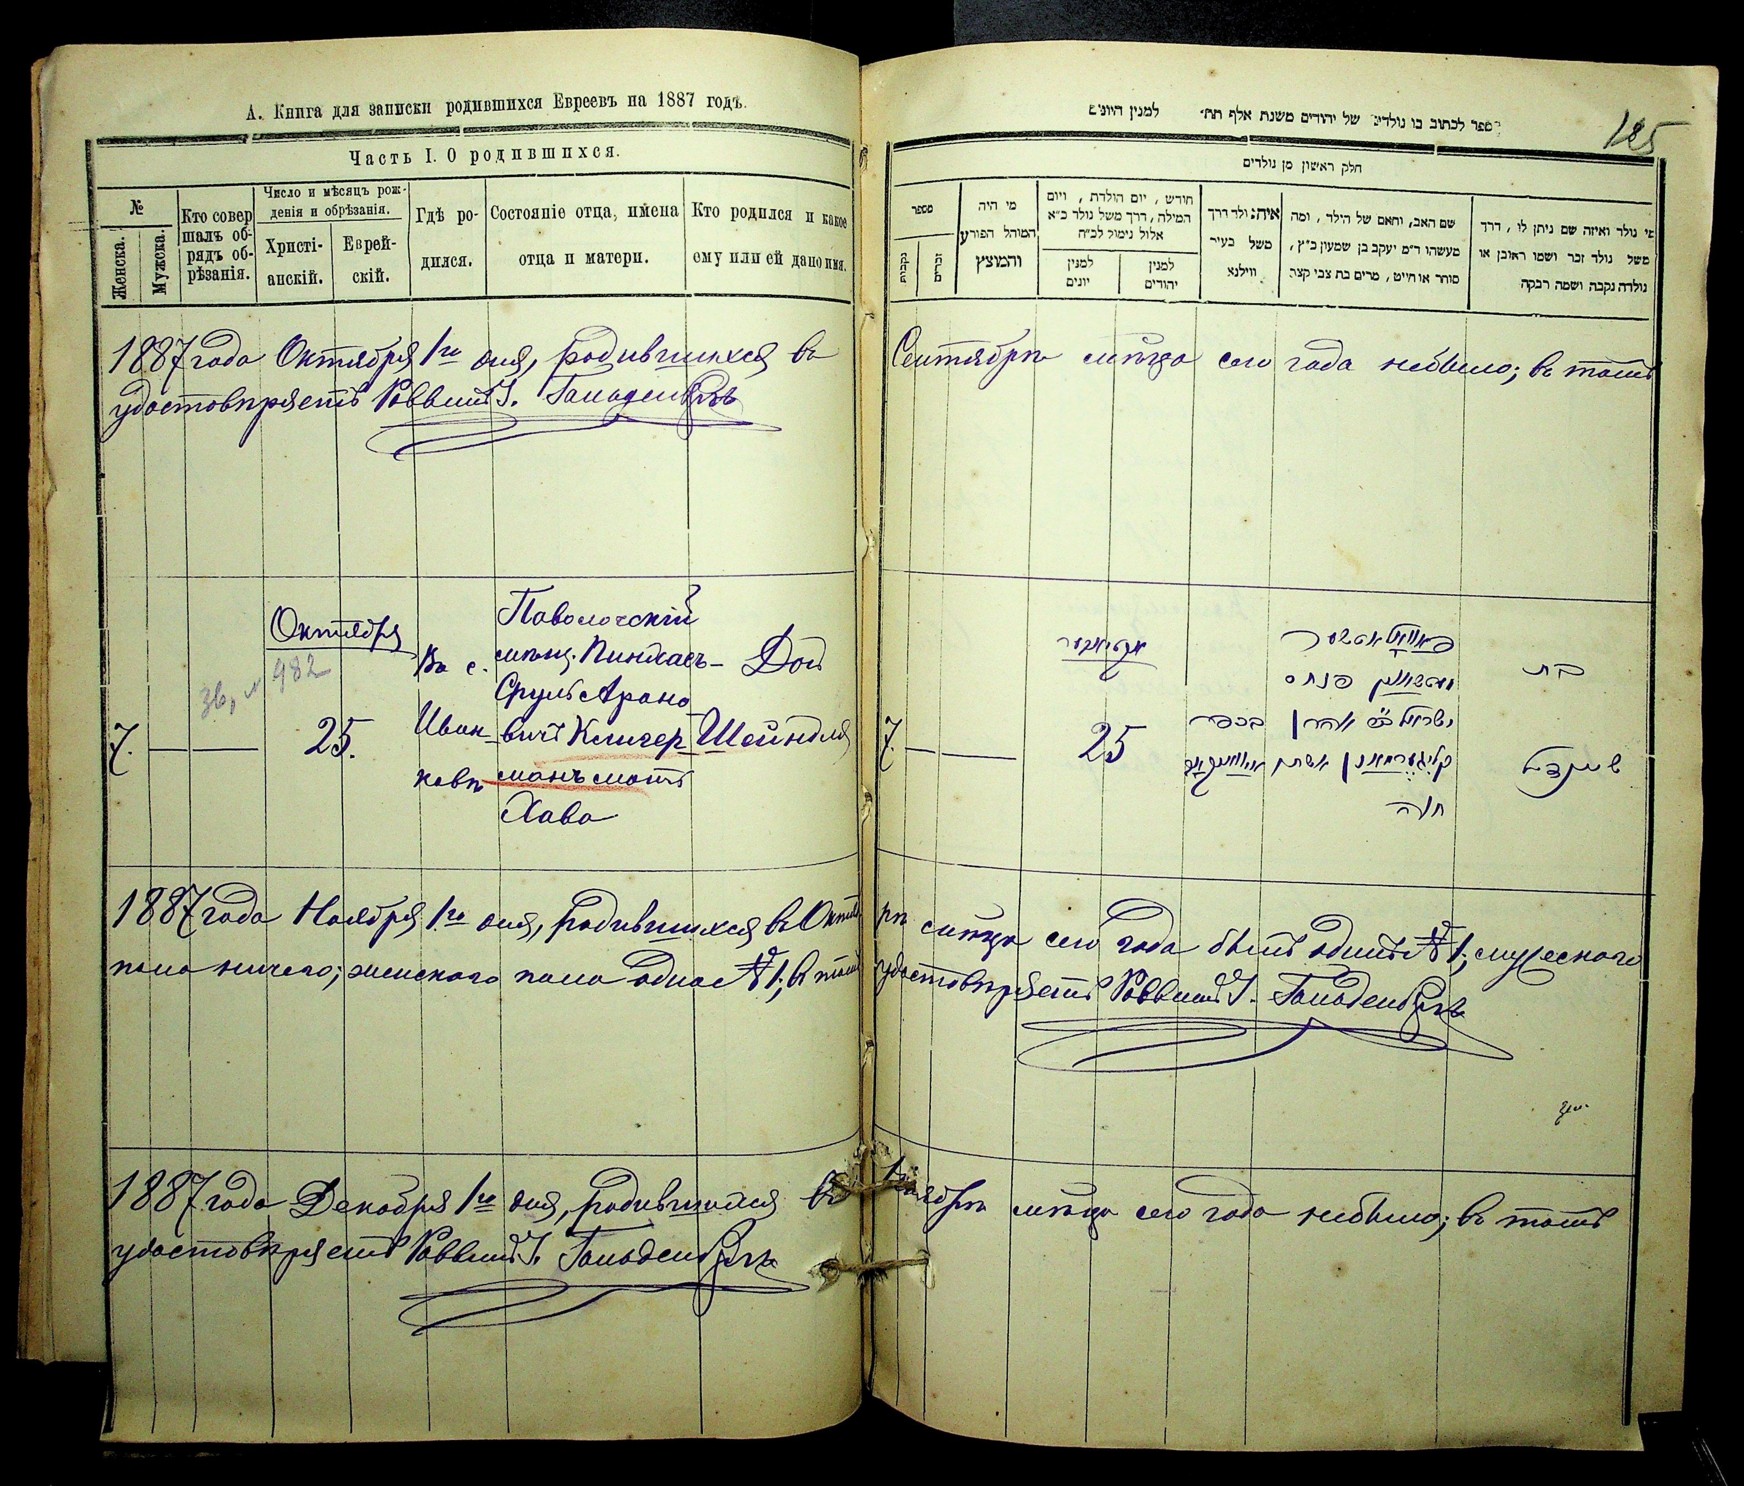 А. Книга для записки родившихся Евреевъ на 1887 годъ.
Часть I. О родившихся.
№
Женска.
Мужска.
Кто совер
шалъ об-
рядъ об-
рѣзанія.
Число и мѣсяцъ рож-
денія и обрѣзанія.
Христі-
анскій.
Еврей-
скій.
Гдѣ ро-
дился.
Состояніе отца, имена
отца и матери.
Кто родился и какое
ему или ей дано имя.
1887 года Октября 1го дня, родившихся въ
удостовѣряетъ Раввинъ
Октября
982
7.
25.
Въ с.
Иван-
ковѣ
Паволочскій
мѣщ. Пинхасъ-
Сруль Арано
вичъ Клигер
манъ мать
Хава
Дочь
Шейндля
1887 года Ноября 1го дня, родившихся въ Октяб
пола ничего; женского пола одна №1; въ томъ
1887 года Декабря 1го дня, родившихся въ
удостовѣряетъ Раввинъ
ספר לכתוב בו נולדים של יהודים משנת אלף תת׳ למנין היונים
125
חלק ראשון מן נולדים
מי נולד ואיזה שם ניתן לו, דרך
משל נולד זכר ושמו ראובן או
נולדה נקבה ושמה רבקה
שם האב, והאם של הילד, ומה
מעשהו ר״מ יעקב בן שמעון כ״ץ,
סוחר או חייט, מרים בת צבי קצב
איה נולד דרך
משל בעיר
ווילנא
חודש, יום הולדת, ויום
המילה, דרך משל נולד כ״א
אלול נימול לכ״ח
למנין
יהודים
למנין
יונים
מי היה
המוהל הפורע
והמוצץ
מספר
זכרים
נקבות
Сентябрѣ мѣсяцѣ сего года небыло; въ томъ
בת
שיינדיל
פאוואלאטשער
פנחס
ישראל ב״ר אהרן
קליגערמאן אשתו
חוה
בכפר
אקטיאבער
25
7.
рѣ мѣсяцѣ сего года былъ одинъ №1; мужеского
удостовѣряетъ Раввинъ
Ноябрѣ мѣсяцѣ сего года небыло; въ томъ